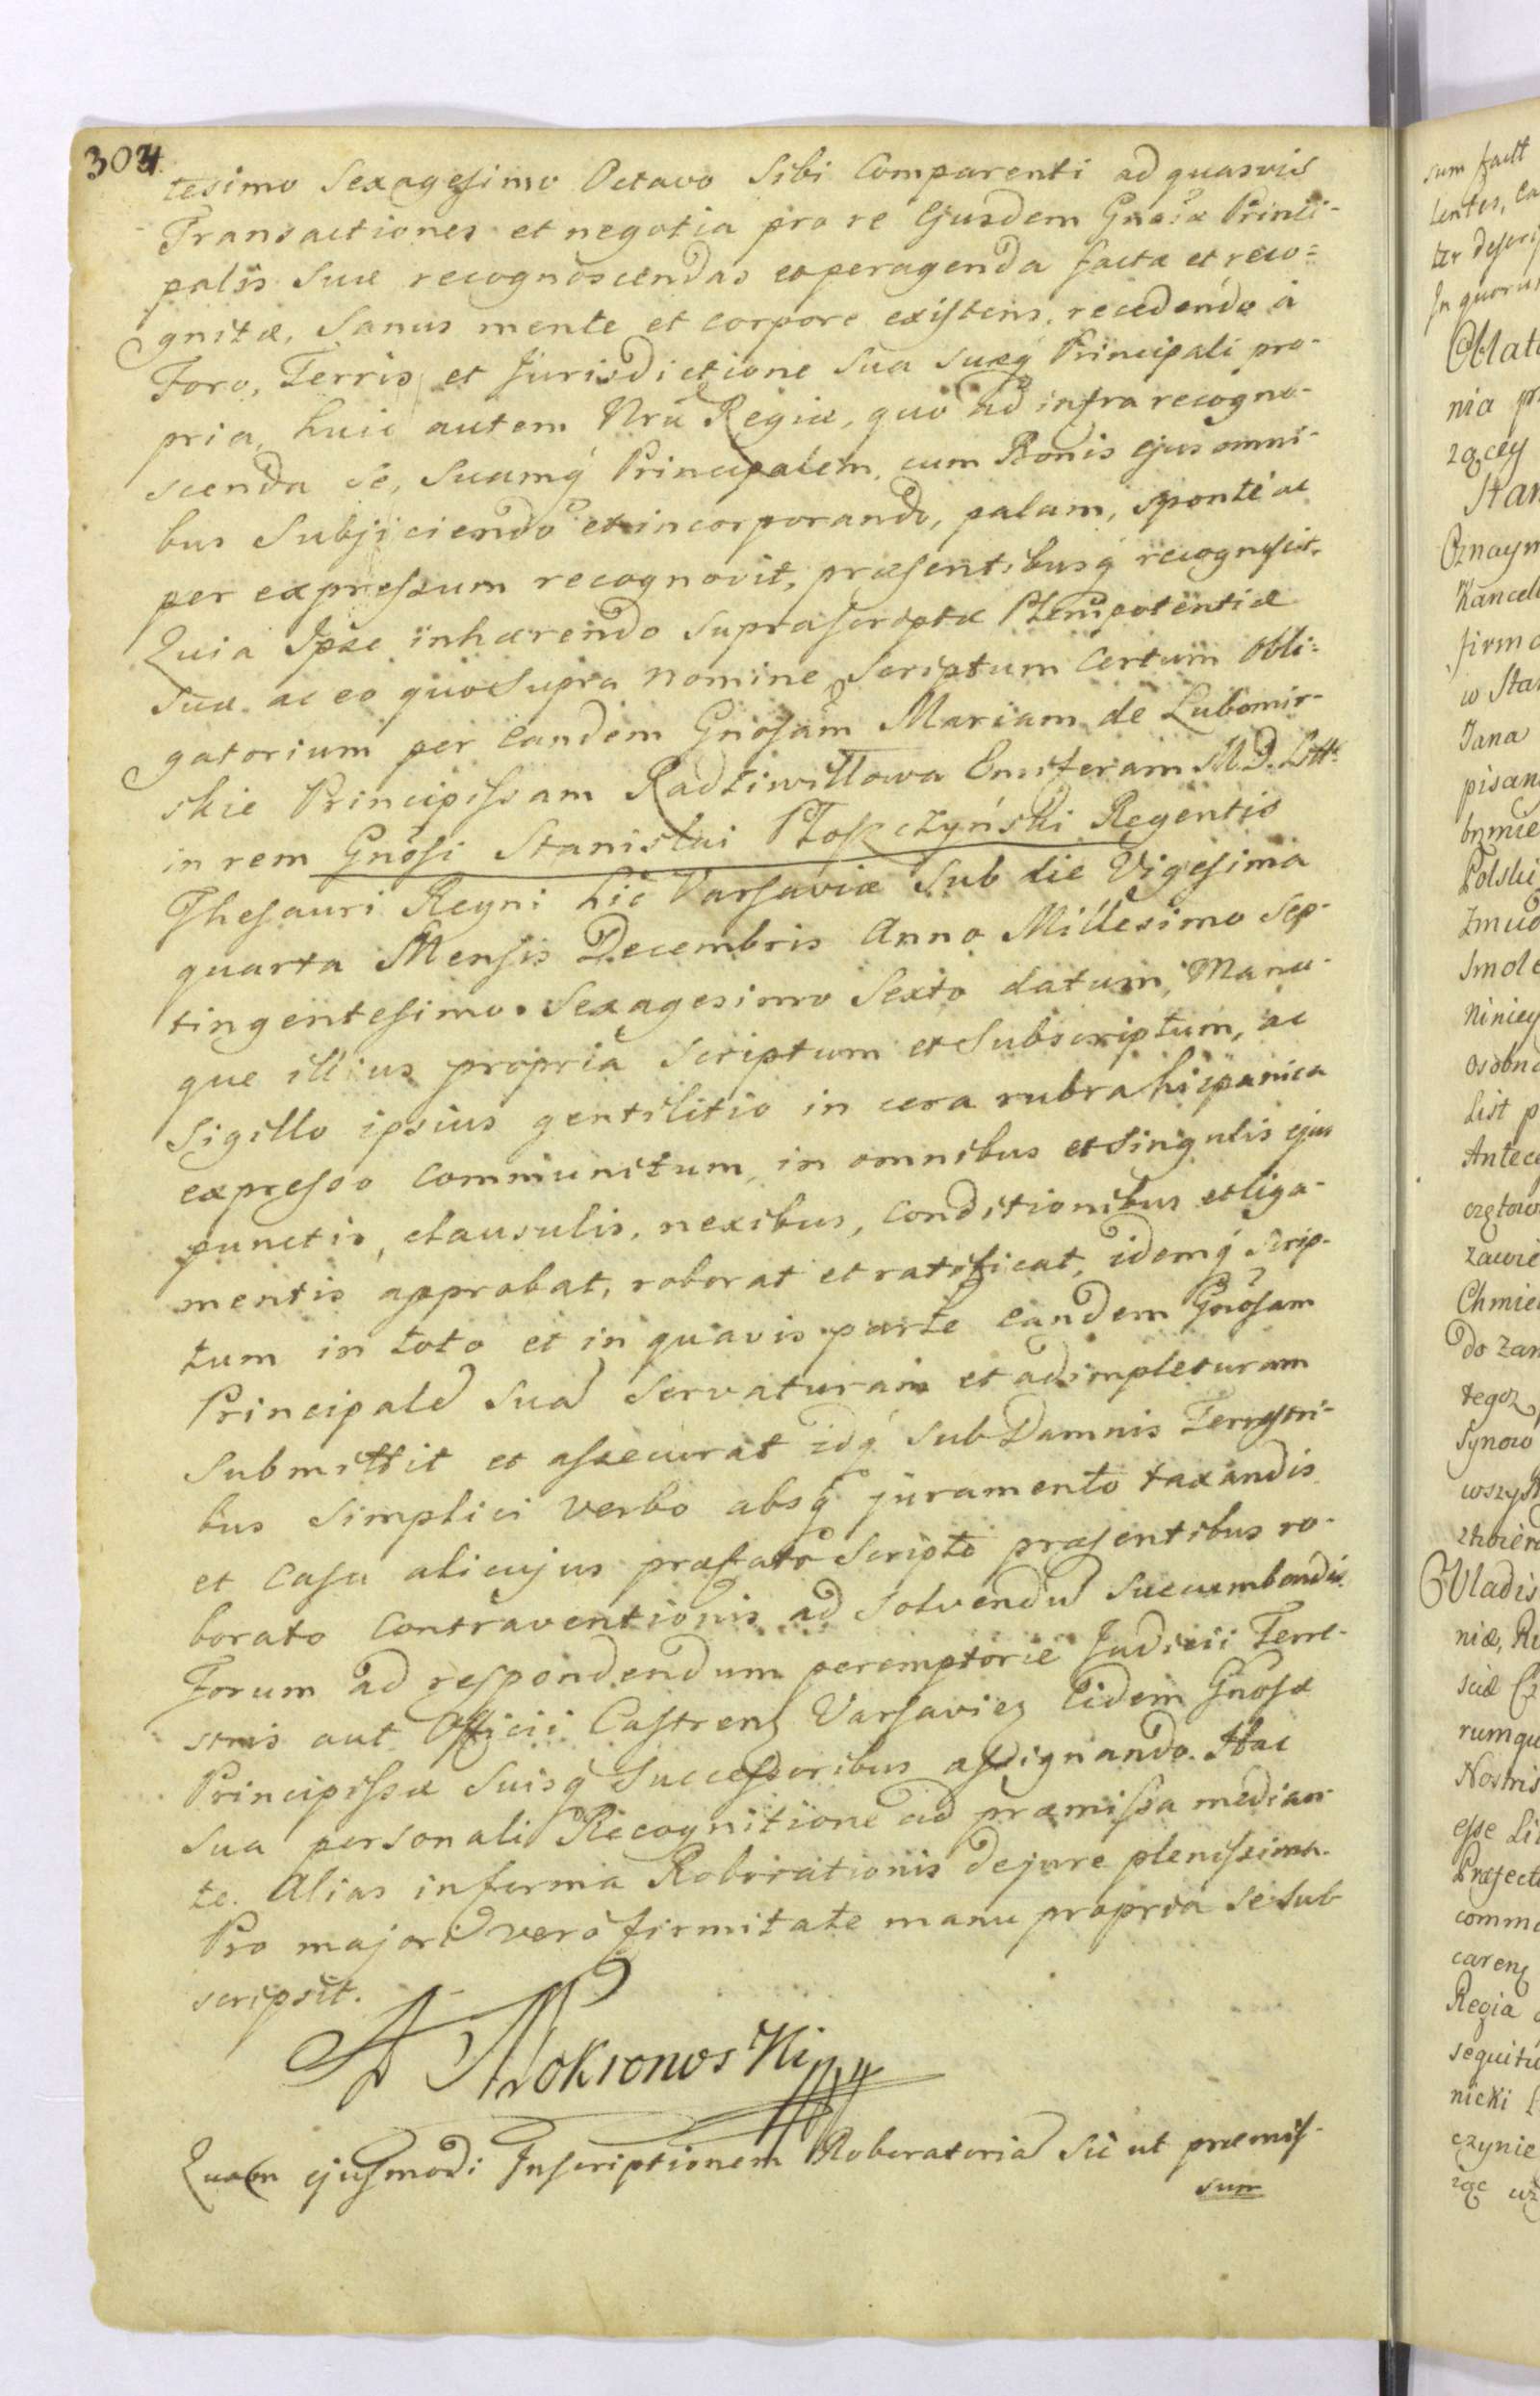 304.
tesimo Sexagesimo Octavo Sibi Comparenti ad quasvis
Transactiones et negotia pro re Ejusdem Gnosæ Princi-
palis Suæ recognoscendas et peragenda factæ et reco=
gnitæ, Sanus mente et corpore existens, recedendo à
Foro, Terris et Jurisdictione Sua Suæq Principali pro-
pria, huic autem Nrū Regiæ, quo ad infra recogno-
scenda Se, Suamq́ Principalem, cum Bonis Ejus omni-
bus Subjiciendo et incorporando, palam, Sponte ac
per expressum recognovit, præsentibusq́ recognoscit.
Quia Ipse inhærendo Suprascriptæ Plenipotentiæ
Suæ ac eo quo Supra nomine, Scriptum Certum Obli=
gatorium per Eandem Gnosam Mariam de Lubomir-
skie Principissam Radziwiłłowa Ensiferam M.D. Litt:
in rem Gnosi Stanislai Płoszczyński Regentis
Thesauri Regni hic Varsaviæ Sub die Vigesima
quarta Mensis Decembris Anno Millesimo Sep-
tingentesimo Sexagesimo Sexto datum, Manu-
que illius propria Scriptum et Subscriptum, ac
Sigillo ipsius gentilitio in cera rubra hispanica
expresso communitum, in omnibus et Singulis ejus
punctis, clausulis, nexibus, Conditionibus et liga-
mentis approbat, roborat et ratificat, idemq́ Scrip-
tum in toto et in quavis parte Eandem Gnosam
Principalē Suā Servaturam et adimpleturam
Submittit et assecurat idq́ Sub Damnis Terrestri-
bus Simplici Verbo absq́ juramento taxandis
et Casu alicujus præfato Scripto præsentibus ro-
borato Contraventionis ad Solvendū Succumbendis
Forum ad respondendum peremptorie Judicii Terre-
stris aut Officii Castrenș Varsavieș Eidem Gnosæ
Principissæ Suisq́ Successoribus assignando. Hac
Sua personali Recognitione ad præmissa median-
te. Alias in forma Roborationis de jure plenissima.
Pro majori vero firmitate manu propria Se Sub
scripsit.
A Mokronoski
Quam ejusmodi Inscriptionem Roboratoriā Sic ut præmis-
sum